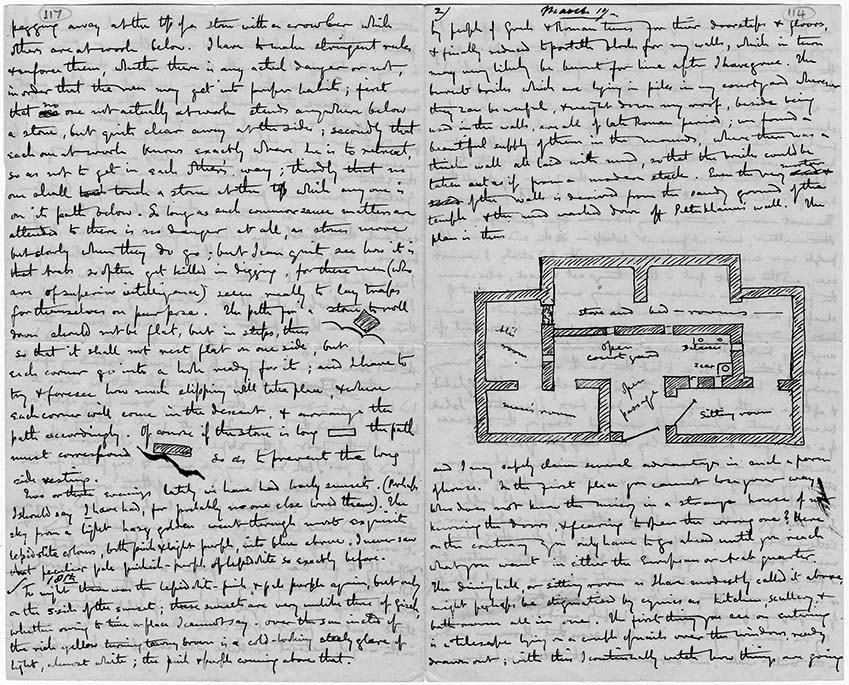 117
pegging away at the top of a stone with a crowbar while
others are at work below. I have to make stringent rules
& enforce them, whether there is any actual danger or not,
in order that the men may get into proper habits; first
that no one not actually at work stands anywhere below
a stone, but quite clear away at the sides; secondly that
each one at work knows exactly where he is to retreat,
so as not to get in each others way; thirdly that no
one shall touch a stone at the top which any one is
on it path below. So long as such common sense matters are
attended to there is no danger at all, as stones move
but slowly when they do go; but I can quite see how it is
that Arabs so often get killed in digging, for these men (who
are of superior intelligence) seem really to lay traps
for themselves on purpose. The path for a stone to roll
down should not be flat, but in steps, thus
so that it shall not rest flat on one side, but
each corner go into a hole ready for it; and I have to
try & foresee how much slipping will take place, & where
each corner will come in the descent, & arrange the
path accordingly. Of course if the stone is long the path
must correspond so as to prevent the long
side resting.
Two or three evenings lately we have had lovely sunsets. (Perhaps
I should say I have had, for probably no one else loved them). The
sky from a light hazy golden went through most exquisite
lepidolite colours, both pink & light purple, into blue above. I never saw
that peculiar pale pinkish-purple of lepidolite so exactly before.
18th
To night there was the lepidolite-pink & pale purple again, but only
on the S side of the sunset; these sunsets are very unlike those of Gizeh,
whether owing to time or place I cannot say. over the sun instead of
the rich yellow turning tawny brown is a cold-looking steely glare of
light, almost white; the pink & purple coming above that.
2/ March 19. 114
by people of Greek & Roman times for their doorsteps & floors,
& finally reduced to portable blocks for my walls, which in turn
may very likely be burnt for lime after I have gone. The
burnt bricks which are lying in piles in my courtyard wherever
they can be useful, & weight down my roof, beside being
used in the walls, are all of late Roman period; we found a
beautiful supply of them in the mounds, where there was a
thick wall all laid with mud, so that the bricks could be
taken out as if from a modern stack. Even the very mortar
of the walls is derived from the sandy ground of the
temple & the mud washed down off Petukhanu's wall. The
plan is thus
store and bed-rooms
Ali's room
open court yard
open passage
sitting room
and I may safely claim several advantages in such a form
of house. In the first place you cannot lose your way.
Who does not know the misery in a strange house of not
knowing the doors, & fearing to open the wrong one? here
on the contrary you only have to go ahead until you reach
what you want in either the European or Arab quarter.
The dining hall, or sitting room as I have modestly called it above,
might perhaps be stigmatised by cynics as kitchen, scullery, &
bath room all in one. The first thing you see on entering
is a telescope lying on a couple of nails over the window, ready
drawn out; with this I continually watch how things are going